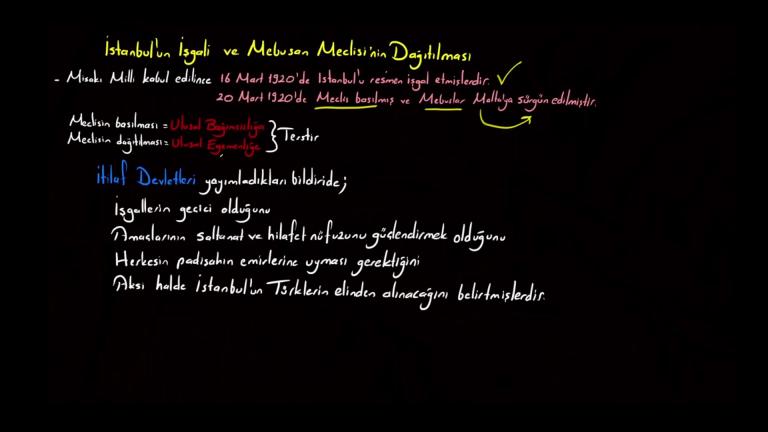 İstanbul'un İşgali ve Mebusan Meclisi'nin Dağıtılması
- Misakı Milli kabul edilince 16 Mart 1920'de İstanbul'u resmen işgal etmişlerdir.
20 Mart 1920'de Meclis basılmış ve Mebuslar Malta'ya sürgün edilmiştir.
Meclisin basılması = Ulusal Bağımsızlığa
Meclisin dağıtılması = Ulusal Egemenliğe
Terstir
İtilaf Devletleri yayımladıkları bildiride;
İşgallerin geçici olduğunu
Amaçlarının saltanat ve hilafet nüfuzunu güçlendirmek olduğunu
Herkesin padişahın emirlerine uyması gerektiğini
Aksi halde İstanbul'un Türklerin elinden alınacağını belirtmişlerdir.